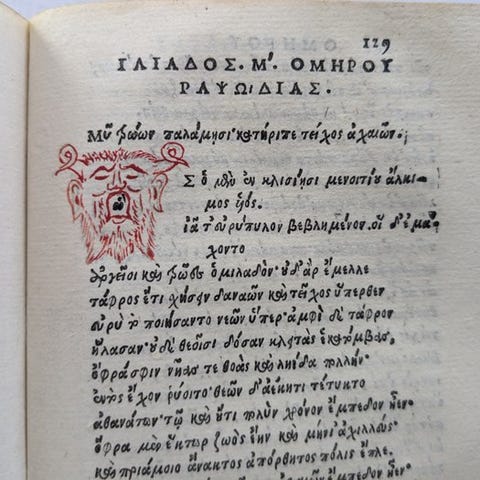 129
ΙΛΙΑΔΟΣ. Μʹ. ΟΜΗΡΟΥ
ΡΑΨΩΙΔΙΑΣ.
Μῦ τρώων παλάμησι κατήριπε τεῖχος ἀχαιῶν.
ὣ Σ ὁ μὲν ἐν κλισίησι μενοιτίου ἄλκι-
μος υἱός.
ἰᾶτ' εὐρύπυλον βεβλημένον. οἱ δ' ἐμά-
χοντο
ἀργεῖοι καὶ τρῶες ὁμιλαδόν· οὐδ' ἄρ ἔμελλε
τάφρος ἔτι σχήσειν δαναῶν καὶ τεῖχος ὕπερθεν
εὐρὺ τὸ ποιήσαντο νεῶν ὕπερ· ἀμφὶ δὲ τάφρον
ἤλασαν· οὐδὲ θεοῖσι δόσαν κλειτὰς ἑκατόμβας,
ὄφρα σφιν νῆάς τε θοὰς καὶ ληίδα πολλὴν
ἐντὸς ἔχον ῥύοιτο· θεῶν δ' ἀέκητι τέτυκτο
ἀθανάτων· τῷ καὶ οὔτι πολὺν χρόνον ἔμπεδον ἦεν·
ὄφρα μὲν ἕκτωρ ζωὸς ἔην καὶ μήνι' ἀχιλλεύς·
καὶ πριάμοιο ἄνακτος ἀπόρθητος πόλις ἔπλε,
ἀχαιῶν ἔμπεδον ἦεν·